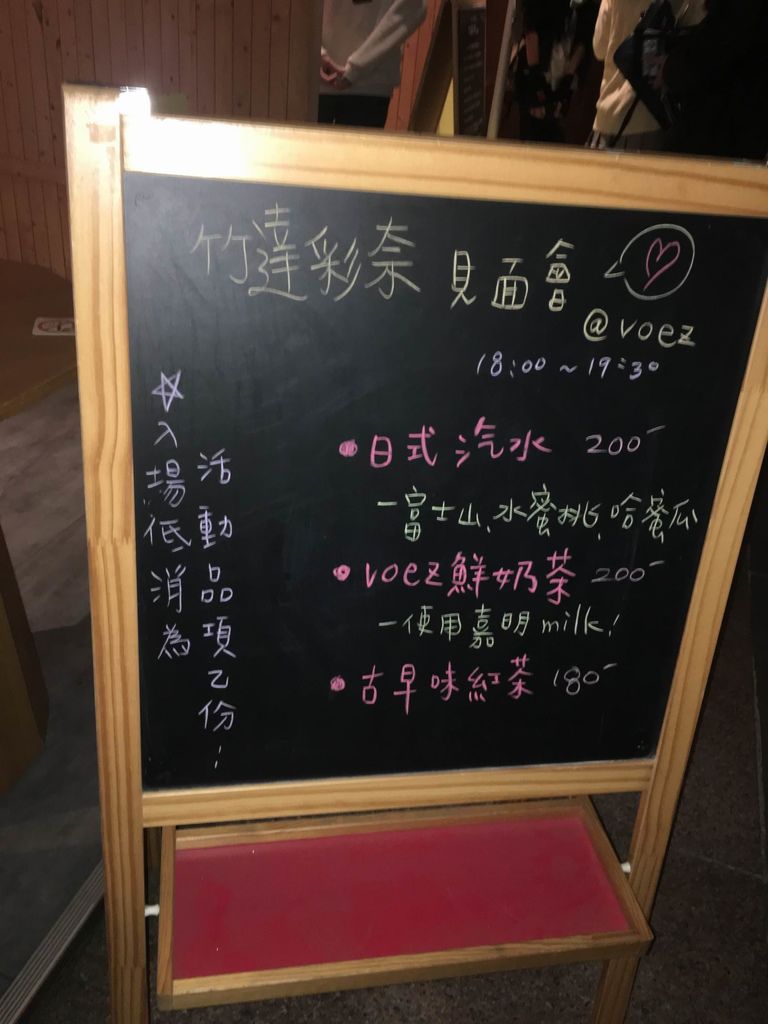 竹達彩奈 見面會
@voez
18:00 ~ 19:30
• 日式汽水 200-
-富士山、水蜜桃、哈蜜瓜
• voez鮮奶茶 200-
-使用嘉明milk!
• 古早味紅茶 180-
☆入場低消為
活動品項乙份!